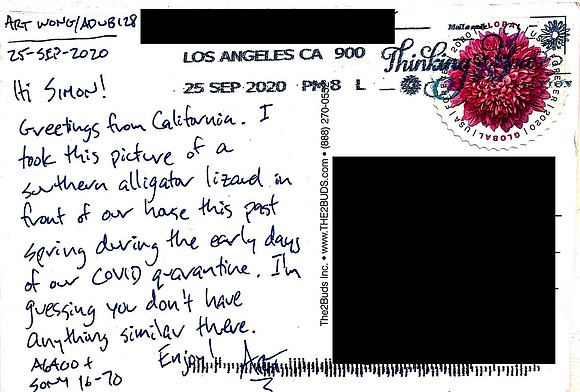 ART WONG/ADUB128
25-SEP-2020
LOS ANGELES CA 900
25 SEP 2020 PM 8 L
Thinking
GLOBAL
2020
GLOBAL
USA
FOREVER
2020
Hi SIMON!
Greetings from California. I
took this picture of a
southern alligator lizard in
front of our house this past
spring during the early days
of our COVID quarantine. I'm
guessing you don't have
anything similar there.
Enjoy! Art
A6400 +
SONY 16-70
The2Buds Inc. • www.THE2BUDS.com • (888) 270-05